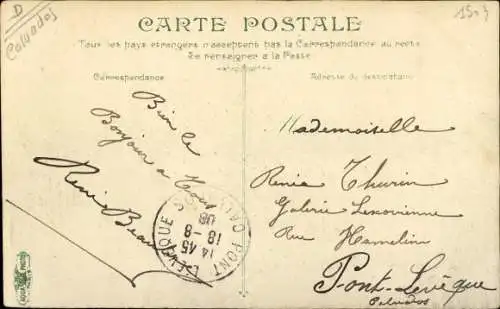 D
Calvados
1503
CARTE POSTALE
Tous les pays étrangers n'acceptent pas la Correspondance au recto
Se renseigner à la Poste
Correspondance
Adresse du destinataire
Bien le
Bonjour a Tous
René
PONT-L'EVEQUE
14 45
18 -8
08
CALVADOS
Mademoiselle
Renée Thurin
Galerie Lexovienne
Rue Hamelin
Pont-Levêque
Calvados